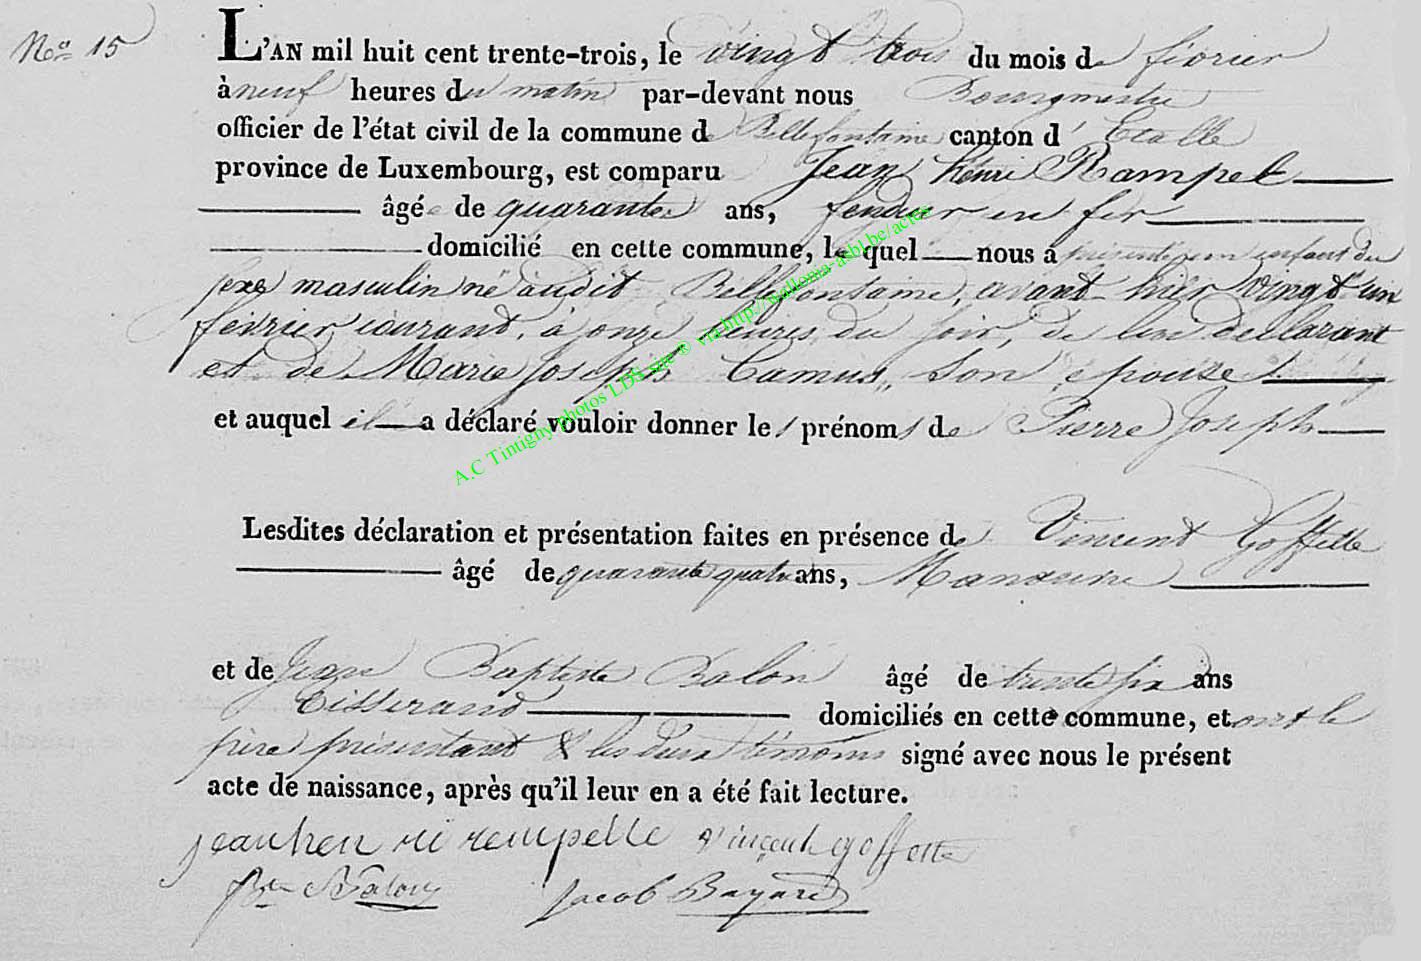 No. 15
L'AN mil huit cent trente-trois, le vingt trois du mois de février
à neuf heures du matin par-devant nous Bourgmestre
officier de l'état civil de la commune de Bellefontaine canton d'Etalle
province de Luxembourg, est comparu Jean Henri Rampel
âgé de quarante ans, fendeur en fer
domicilié en cette commune, lequel nous a présenté un enfant du
sexe masculin né audit Bellefontaine, avant hier vingt un
février courant, à onze heures du soir, de lui déclarant
et de Marie Joseph Camus, son épouse
et auquel il a déclaré vouloir donner les prénoms de Pierre Joseph
Lesdites déclaration et présentation faites en présence de Vincent Goffette
âgé de quarante quatre ans, Manœuvre
et de Jean Baptiste Balon âgé de trente six ans
tisserand domiciliés en cette commune, et ont le
père présentant & les deux témoins signé avec nous le présent
acte de naissance, après qu'il leur en a été fait lecture.
jean hen ri rempelle vinçent goffette
Bte Balon Jacob Bayard
A.C Tintigny photos LDS site ® via http://wallonia-asbl.be/actes